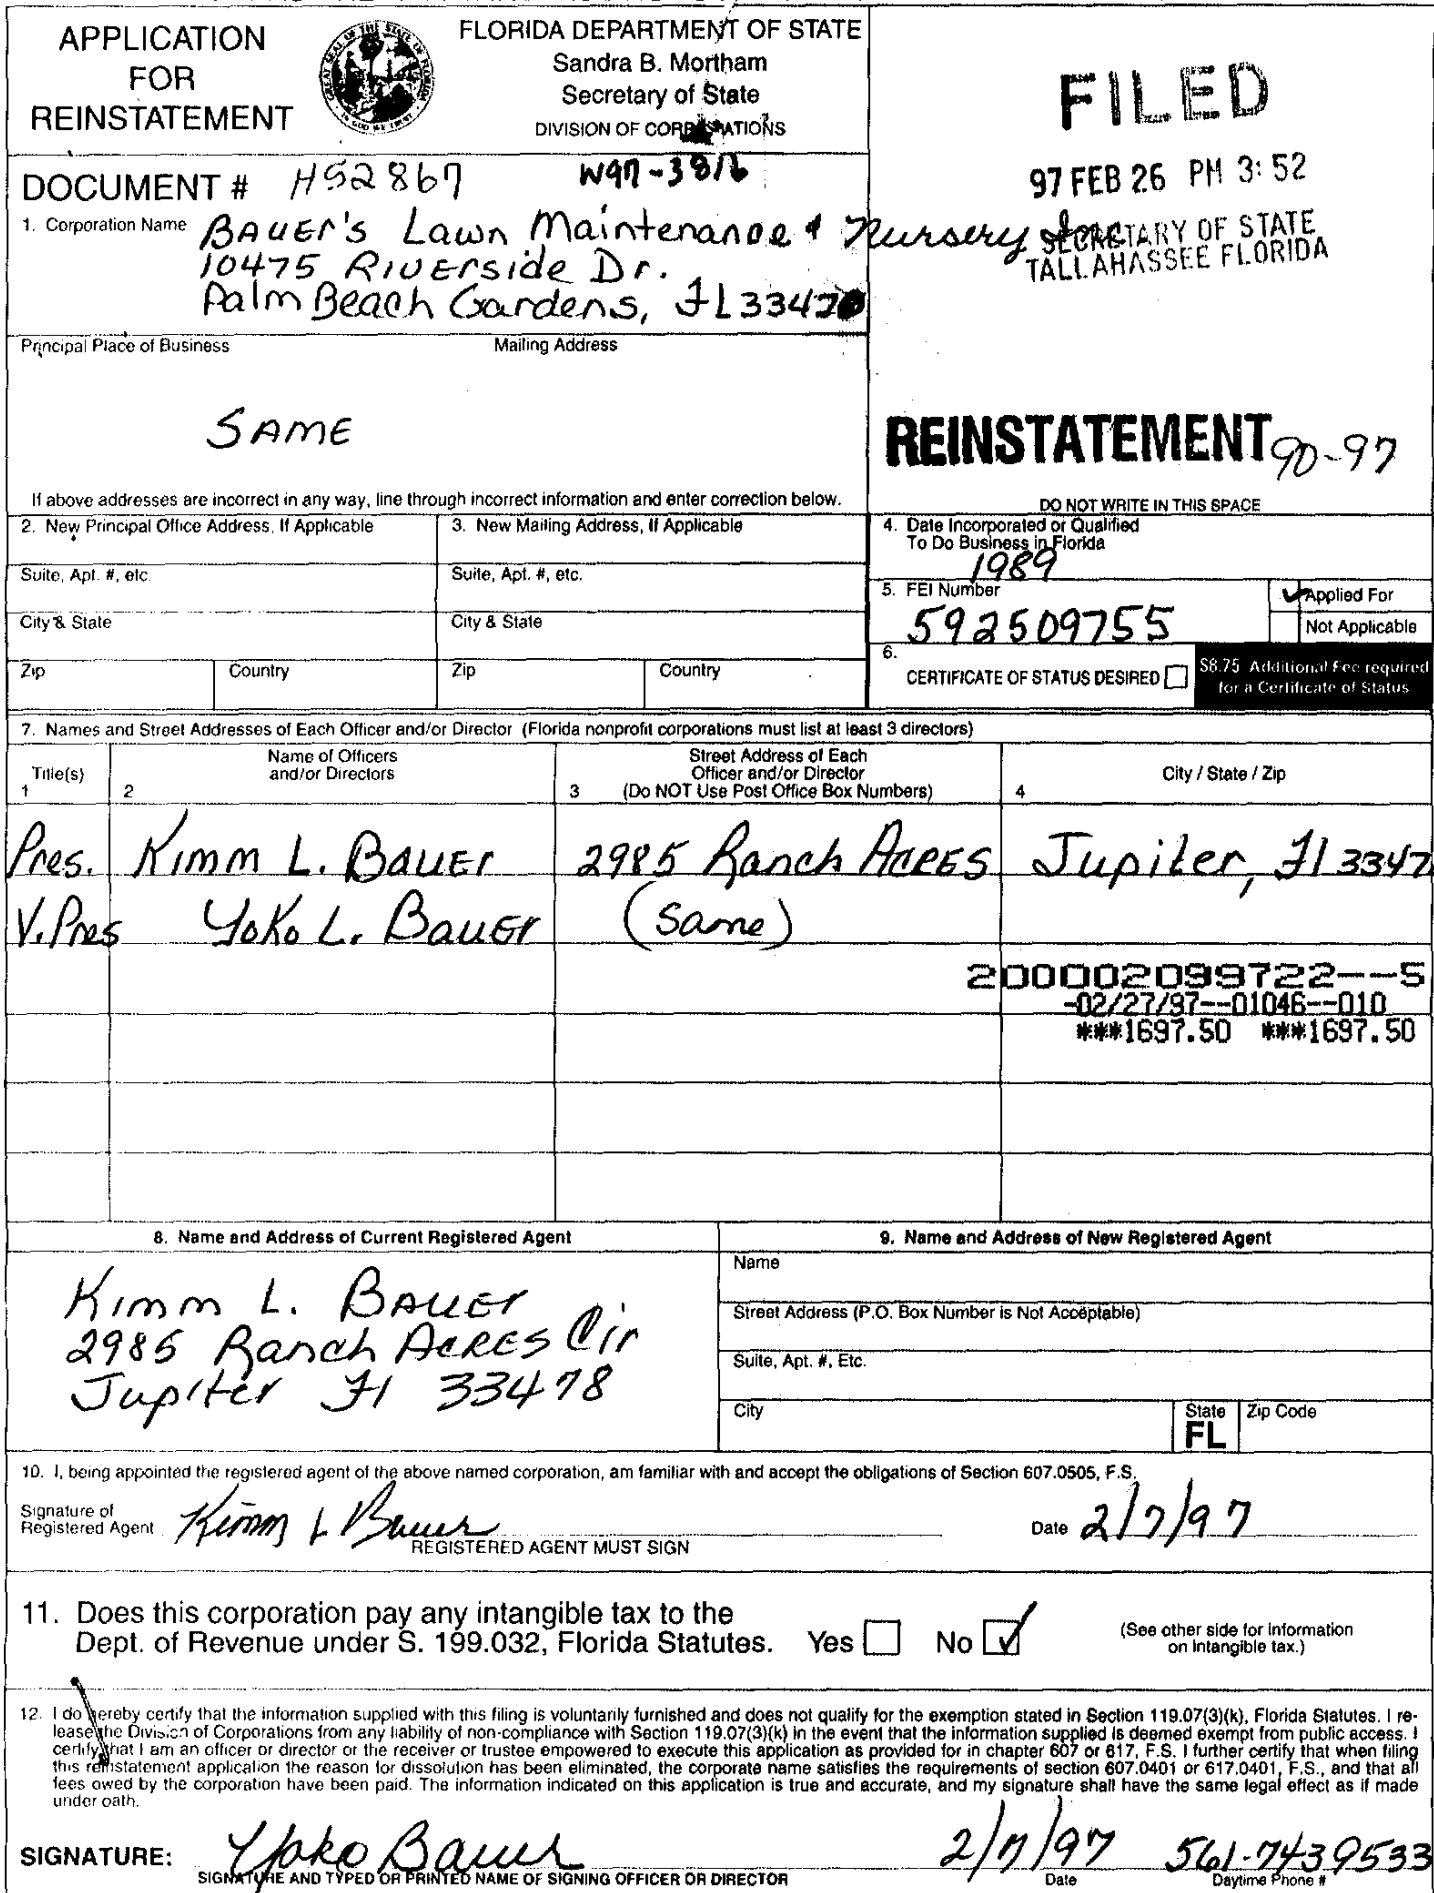 APPLICATION
FOR
REINSTATEMENT
FLORIDA DEPARTMENT OF STATE
Sandra B. Mortham
Secretary of State
DIVISION OF CORPORATIONS
FILED
97 FEB 26 PM 3:52
SECRETARY OF STATE
TALLAHASSEE FLORIDA
DOCUMENT # H52867
W97-3816
1. Corporation Name BAUEr's Lawn Maintenance & Nursery Inc
10475 Riverside Dr.
Palm Beach Gardens, Fl 3341
Principal Place of Business Mailing Address
SAME
REINSTATEMENT 90-97
If above addresses are incorrect in any way, line through incorrect information and enter correction below.
DO NOT WRITE IN THIS SPACE
2. New Principal Office Address, If Applicable
3. New Mailing Address, If Applicable
4. Date Incorporated or Qualified
To Do Business in Florida
1989
Suite, Apt. #, etc. Suite, Apt. #, etc.
5. FEI Number
592509755
Applied For
Not Applicable
City & State City & State
6.
CERTIFICATE OF STATUS DESIRED
$8.75 Additional Fee required
for a Certificate of Status
Zip Country Zip Country
7. Names and Street Addresses of Each Officer and/or Director (Florida nonprofit corporations must list at least 3 directors)
Title(s)
1
Name of Officers
and/or Directors
2
Street Address of Each
Officer and/or Director
3 (Do NOT Use Post Office Box Numbers)
City / State / Zip
4
Pres. Kimm L. BAUEr 2985 Ranch ACRES Jupiter, Fl 3347
V.Pres Yoko L. BauEr (Same)
200002099722--5
-02/27/97--01046--010
***1697.50 ***1697.50
8. Name and Address of Current Registered Agent
9. Name and Address of New Registered Agent
Kimm L. BAUEr
2985 Ranch ACRES Cir
Jupiter Fl 33478
Name
Street Address (P.O. Box Number is Not Acceptable)
Suite, Apt. #, Etc.
City State Zip Code
FL
10. I, being appointed the registered agent of the above named corporation, am familiar with and accept the obligations of Section 607.0505, F.S.
Signature of
Registered Agent Kimm L Bauer
REGISTERED AGENT MUST SIGN
Date 2/7/97
11. Does this corporation pay any intangible tax to the
Dept. of Revenue under S. 199.032, Florida Statutes. Yes No
(See other side for information
on intangible tax.)
12. I do hereby certify that the information supplied with this filing is voluntarily furnished and does not qualify for the exemption stated in Section 119.07(3)(k), Florida Statutes. I re-
lease the Division of Corporations from any liability of non-compliance with Section 119.07(3)(k) in the event that the information supplied is deemed exempt from public access. I
certify that I am an officer or director or the receiver or trustee empowered to execute this application as provided for in chapter 607 or 617, F.S. I further certify that when filing
this reinstatement application the reason for dissolution has been eliminated, the corporate name satisfies the requirements of section 607.0401 or 617.0401, F.S., and that all
fees owed by the corporation have been paid. The information indicated on this application is true and accurate, and my signature shall have the same legal effect as if made
under oath.
SIGNATURE: Yoko Bauer 2/7/97 561-7439533
SIGNATURE AND TYPED OR PRINTED NAME OF SIGNING OFFICER OR DIRECTOR Date Daytime Phone #